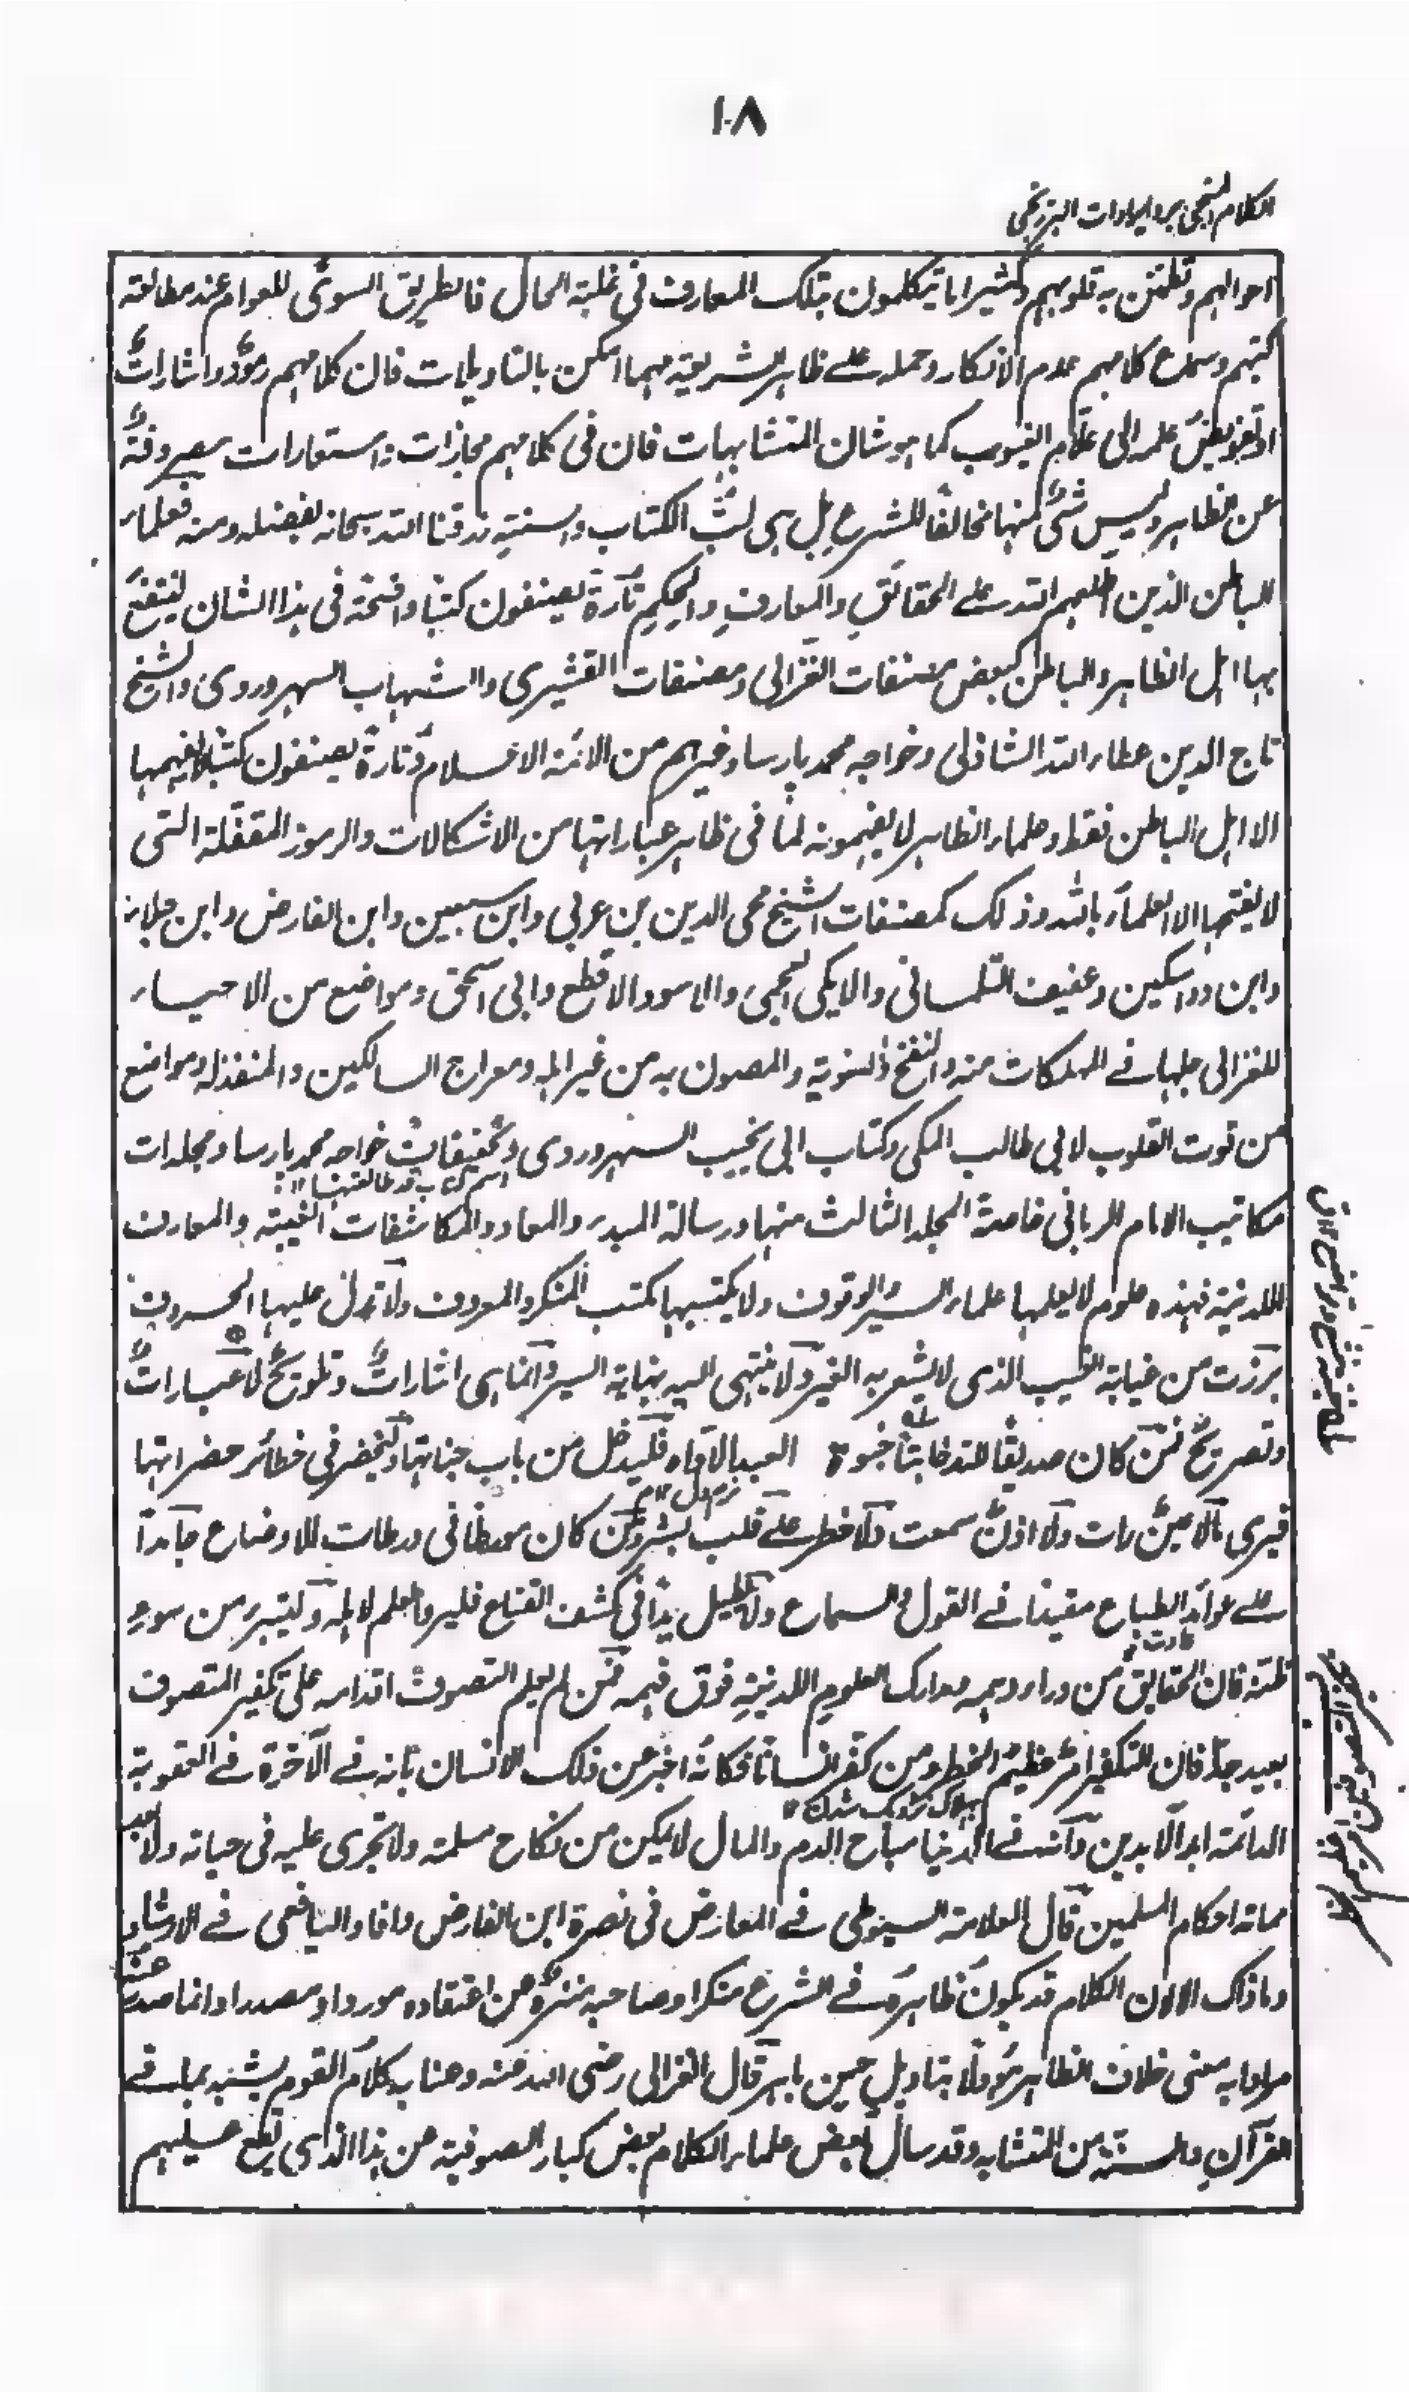 ١٠٨
الکلام المنجی برد ایرادات البرزنجی
احوالہم وتطمئن بہ قلوبہم وکثیرا ما یتکلمون بتلک المعارف فی غلبۃ الحال فالطریق السوی للعوام عند مطالعۃ
کتبہم وسماع کلامہم عدم الانکار وحملہ علے ظاہر الشریعۃ مہما امکن بالتاویلات فان کلامہم رموز واشارات
او تفویض علمہ الی علام الغیوب کما ہو شان المتشابہات فان فی کلامہم مجازات واستعارات مصروفۃ
عن الظاہر ولیس شئ منہا مخالفا للشرع بل ہی لب الکتاب والسنۃ رزقنا اللہ سبحانہ بفضلہ ومنہ فعلماء
الباطن الذین اطلعہم اللہ علے الحقائق والمعارف والحکم تارۃ یصنفون کتبا واضحۃ فی ہذا الشان لینتفع
بہا اہل الظاہر والباطن کبعض مصنفات الغزالی ومصنفات القشیری والشہاب السہروردی والشیخ
تاج الدین عطاء اللہ الشاذلی وخواجہ محمد پارسا وغیرہم من الائمۃ الاعلام وتارۃ یصنفون کتبا لا یفہمہا
الا اہل الباطن فقط وعلماء الظاہر لا یفہمونہ لما فی ظاہر عباراتہا من الاشکالات والرموز المقفلۃ التی
لا یفتحہا الا العلماء باللہ وذلک کمصنفات الشیخ محی الدین بن عربی وابن سبعین وابن الفارض وابن
وابن وعفیف التلمسانی والایکی العجمی والاسود الاقطع وابی اسحق ومواضع من الاحیاء
للغزالی جلہا فے المہلکات منہ والنفخ والتسویۃ والمضنون بہ من غیر اہلہ ومعراج السالکین والمنقذلہ ومواضع
من قوت القلوب لابی طالب المکی وکتاب ابی نجیب السہروردی وتحقیقات خواجہ محمد پارسا ومجلدات
مکاتیب الامام الربانی خاصۃ المجلد الثالث منہا ورسالۃ المبدء والمعاد والمکاشفات الغیبۃ والمعارف
اللدنیۃ فہذہ علوم لا یعلمہا علماء السیر والوقوف ولا یکتسبہا مکتسب المنکر والمعروف ولا تدل علیہا الحروف
برزت من غیابۃ الغیب الذی لا یشعر بہ الغیر ولا ینتہی الیہ نہایۃ السیر وانما ہی اشارات وتلویح لا عبارات
وتصریح فمن کان صدیقا للہ العبد الاواہ فلیدخل من باب جنابتہا ولیحضر فی حظائر حضراتہا
فیری مالا عین رات ولا اذن سمعت ولا خطر علے قلب بشر ومن کان فی ورطات الاوضاع جامدا
علے عوائد الطباع مقیدا فے القول والسماع ولا یطیل یدا فی کشف القناع فلیرد العلم لاہلہ ولیتبرء من سوء
ظنہ فان الحقایق من وراء وہمہ ومدارک العلوم اللدنیۃ فوق فہمہ فمن لم یعلم التصوف اقدامہ علی تکفیر المتصوف
بعید جدا فان التکفیر امر عظیم الخطر ومن کفر انسانا فکانہ اخبر عن ذلک الانسان بانہ فے الآخرۃ فے العقوبۃ
الدائمۃ ابد الآبدین وانہ فے الدنیا مباح الدم والمال لا یمکن من نکاح مسلمۃ ولا تجری علیہ فی حیاتہ ولا بعد
مماتہ احکام المسلمین قال العلامۃ السیوطی فے المعارض فی نصرۃ ابن الفارض وافاد الیافعی فے الارشاد
وما ذاک الا لان الکلام قد یکون ظاہرہ فے الشرع منکرا وصاحبہ منزہ عن اعتقادہ موردا ومصدرا وانما صدر عنہ
مرادا بہ معنی خلاف الظاہر مؤولا بتاویل حسن باہر قال الغزالی رضی اللہ عنہ وعنا بہ کلام القوم یشبہ بما فے
القرآن والسنۃ من المتشابہ وقد سأل بعض علماء الکلام بعض کبار الصوفیۃ عن ہذا الذی